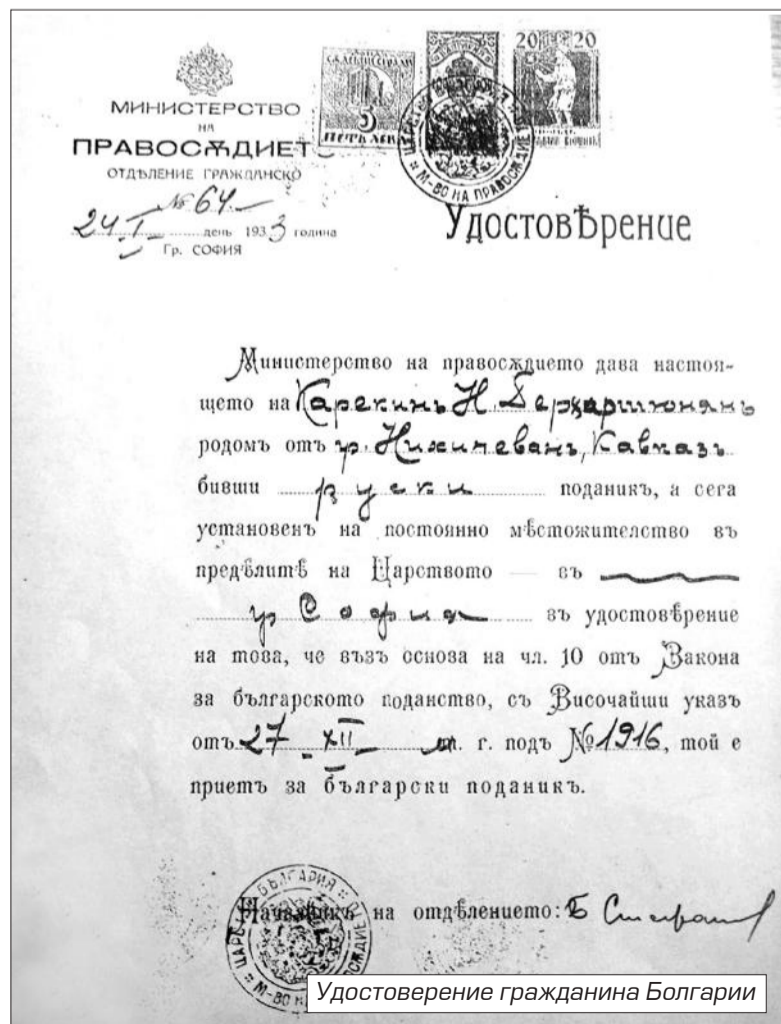 МИНИСТЕРСТВО
НА
ПРАВОСѪДИЕТО
ОТДѢЛЕНИЕ ГРАЖДАНСКО
№ 64
24 I день 1933 година
Гр. СОФИЯ
5
ПЕТЬ ЛЕВА
20 20
ЦАРСТВО
М-ВО НА ПРАВОСѪДИЕ
Удостовѣрение
Министерство на правосѫдието дава настоя-
щето на Карекинъ Н
родомъ отъ гр. Нихичевань, Кавказъ
бивши руски поданикъ, а сега
установенъ на постоянно мѣстожителство въ
предѣлитѣ на Царството — въ
гр София въ удостовѣрение
на това, че възъ основа на чл. 10 отъ Закона
за българското поданство, съ Височайши указъ
отъ 27 XII м. г. подъ № 1916, той е
приетъ за български поданикъ.
Началникъ на отдѣлението: Б
ЦАРСТВО БЪЛГАРИЯ
М-ВО НА ПРАВОСѪДИЕТО
Удостоверение гражданина Болгарии